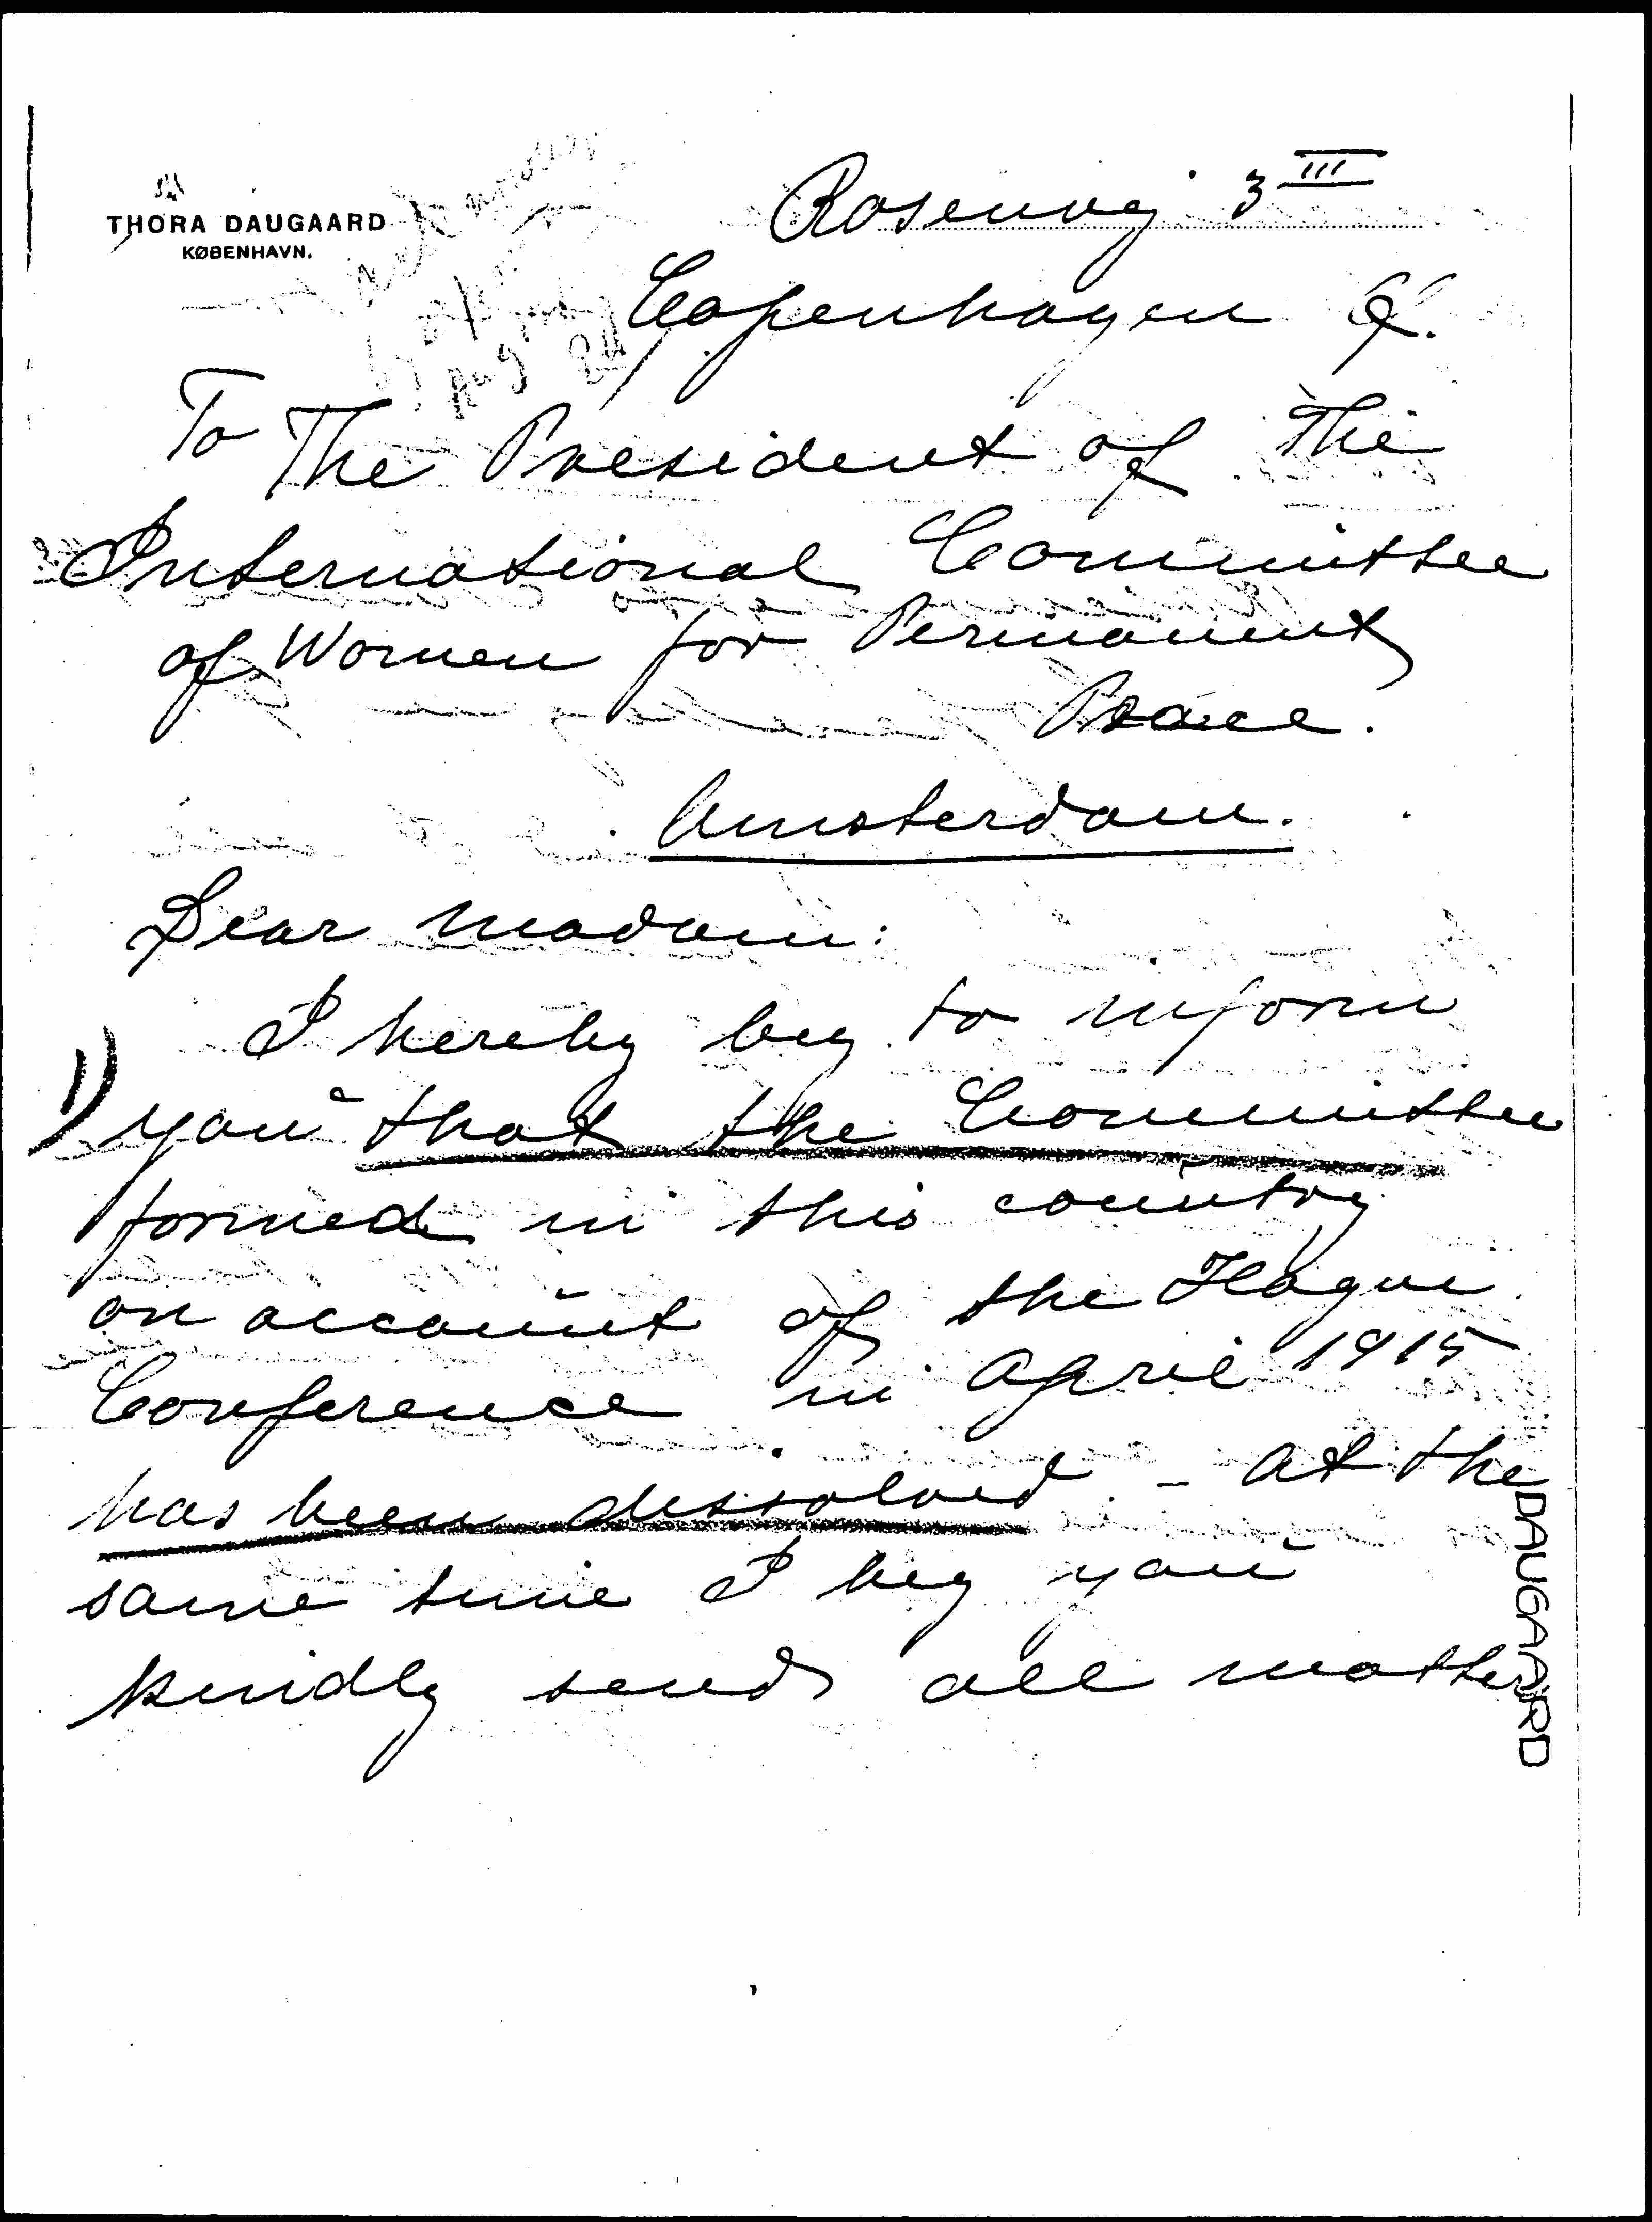 THORA DAUGAARD
KØBENHAVN.
Rosenvej 3 III
Copenhagen
To The President of the
International Committee
of Women for Permanent
Peace.
Amsterdam.
Dear Madam:
I hereby beg to inform
you that the Committee
formed in this country
on account of the Hague
Conference in April 1915
has been dissolved. - At the
same time I beg you
kindly send all matter
DAUGAARD